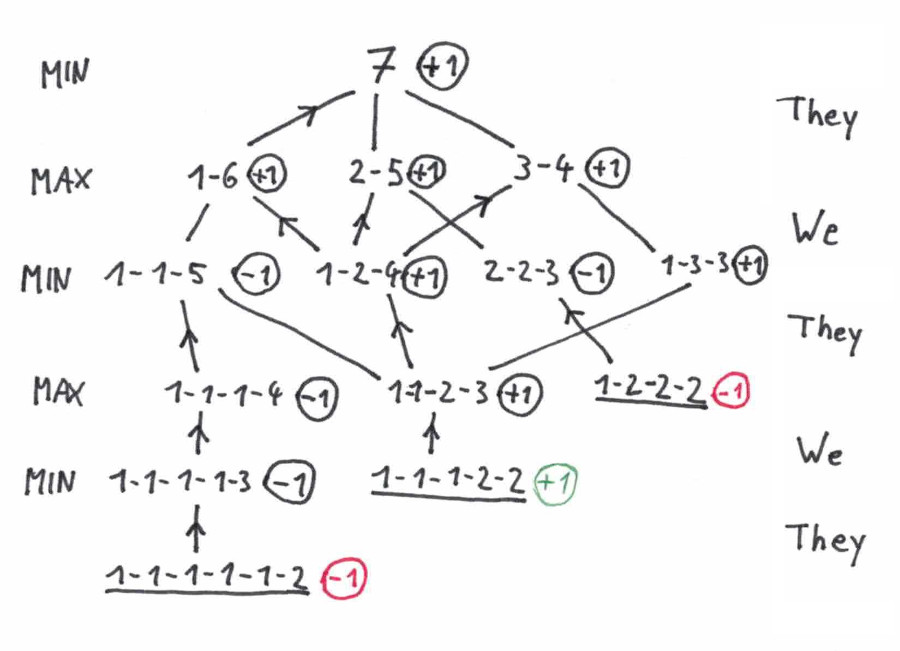 MIN 7 +1
They
MAX 1-6 +1 2-5 +1 3-4 +1
We
MIN 1-1-5 -1 1-2-4 +1 2-2-3 -1 1-3-3 +1
They
MAX 1-1-1-4 -1 1-1-2-3 +1 1-2-2-2 -1
We
MIN 1-1-1-1-3 -1 1-1-1-2-2 +1
They
1-1-1-1-1-2 -1